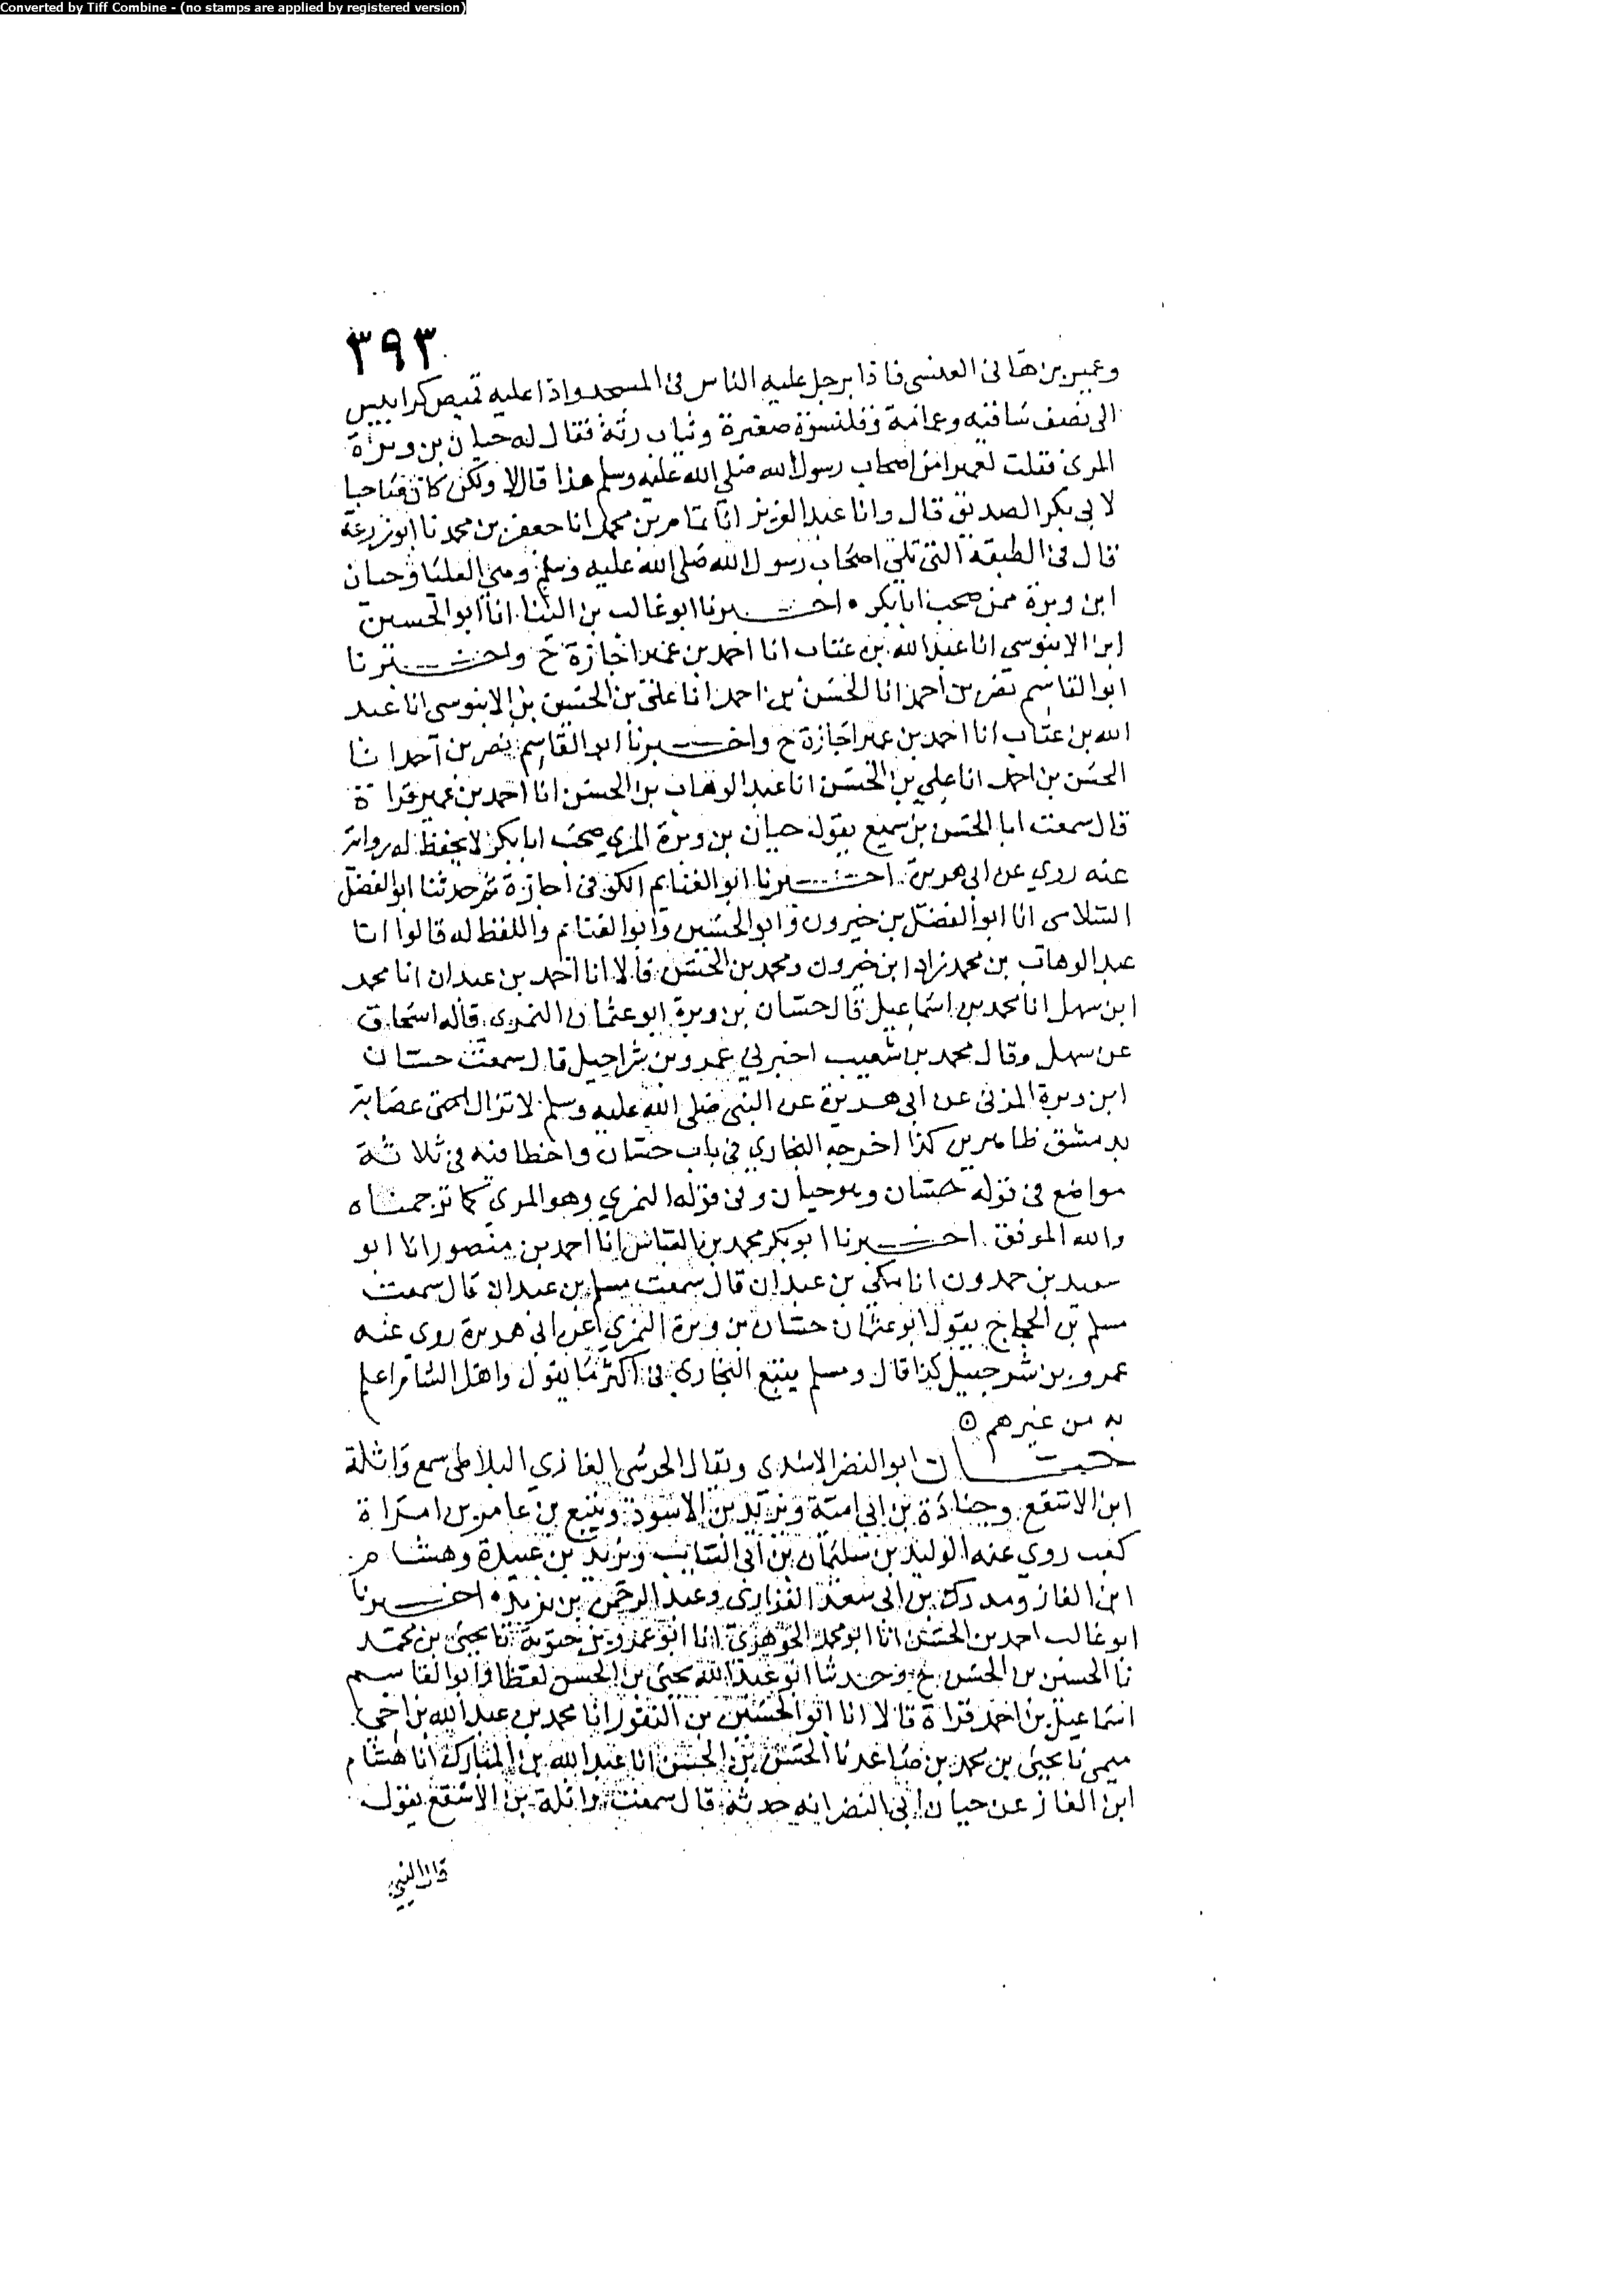 Converted by Tiff Combine - (no stamps are applied by registered version)
٣٩٣
وعمير بن هانى العنسى فاذا برجل عليه الناس فى المسجد واذا عليه قميص كرابيس
الى نصف ساقيه وعمامة وقلنسوة صغيرة وثياب رثة فقال له حيان بن وبرة
المرى فقلت لعمير امن اصحاب رسول الله صلى الله عليه وسلم هذا قال لا ولكن كان صاحبا
لابى بكر الصديق قال وانا عبد العزيز انا تمام بن محمد انا جعفر بن محمد نا ابو زرعة
قال فى الطبقة التى تلى اصحاب رسول الله صلى الله عليه وسلم وهى العليا وحيان
ابن وبرة ممن صحب ابا بكر اخبرنا ابو غالب بن البنا انا ابو الحسين
ابن الابنوسى انا عبد الله بن عتاب انا احمد بن عمير اجازة ح واخبرنا
ابو القاسم نصر بن احمد انا الحسن بن احمد انا على بن الحسن بن الابنوسى انا عبد
الله بن عتاب انا احمد بن عمير اجازة ح واخبرنا ابو القاسم نصر بن احمد انا
الحسن بن احمد انا على بن الحسن انا عبد الوهاب بن الحسن انا احمد بن عمير قراة
قال سمعت ابا الحسن بن سميع يقول حيان بن وبرة المرى صحب ابا بكر لا يحفظ له رواية
عنه روي عن ابى هريرة اخبرنا ابو الغنايم الكوفى اجازة ثم حدثنا ابو الفضل
السلامى انا ابو الفضل بن خيرون وابو الحسين وابو الغنايم واللفظ له قالوا انا
عبد الوهاب بن محمد زاد ابن خيرون ومحمد بن الحسن قالا انا احمد بن عبدان انا محمد
ابن سهل انا محمد بن اسماعيل قال حسان بن وبرة ابو عثمان النمرى قاله اسحاق
عن سهل وقال محمد بن شعيب اخبرنى عمرو بن شراحيل قال سمعت حسان
ابن وبرة المزنى عن ابى هريرة عن النبى صلى الله عليه وسلم لا تزال امتى عصابة
بدمشق ظاهرين كذا اخرجه البخاري فى باب حسان واخطا فيه فى ثلاثة
مواضع فى قوله حسان وهو حيان وفى قوله النمري وهو المرى كما ترجمناه
والله الموفق اخبرنا ابو بكر محمد بن العباس انا احمد بن منصور انا ابو
سعيد بن حمدون انا مكى بن عبدان قال سمعت مسلم بن عبدان قال سمعت
مسلم بن الحجاج يقول ابو عثمان حسان بن وبرة النمري عن ابى هريرة روى عنه
عمرو بن شرحبيل كذا قال ومسلم يتبع البخارى فى اكثر ما يقول واهل الشام اعلم
به من غيرهم ه
حيان ابو النضر الاسدى ويقال الحرشى الغازي البلاطى سمع واثلة
ابن الاسقع وجنادة بن ابى امية ويزيد بن الاسود وتبيع بن عامر بن امراة
كعب روي عنه الوليد بن سليمان بن ابى السايب ويزيد بن عبيدة وهشام
ابن الغاز ومدرك بن ابى سعد الفزارى وعبد الرحمن بن يزيد اخبرنا
ابو غالب احمد بن الحسن انا ابو محمد الجوهرى انا ابو عمرو بن حيوية نا يحيى بن محمد
نا الحسين بن الحسن ح وحدثنا ابو عبد الله يحيى بن الحسن لفظا وابو القاسم
اسماعيل بن احمد قراة قالا انا ابو الحسين بن النقور انا محمد بن عبد الله بن اخى
ميمى نا يحيى بن محمد بن صاعد نا الحسين بن الحسن انا عبد الله بن المبارك انا هشام
ابن الغاز عن حيان ابى النضر انه حدثه قال سمعت واثلة بن الاسقع يقول
قال النبى